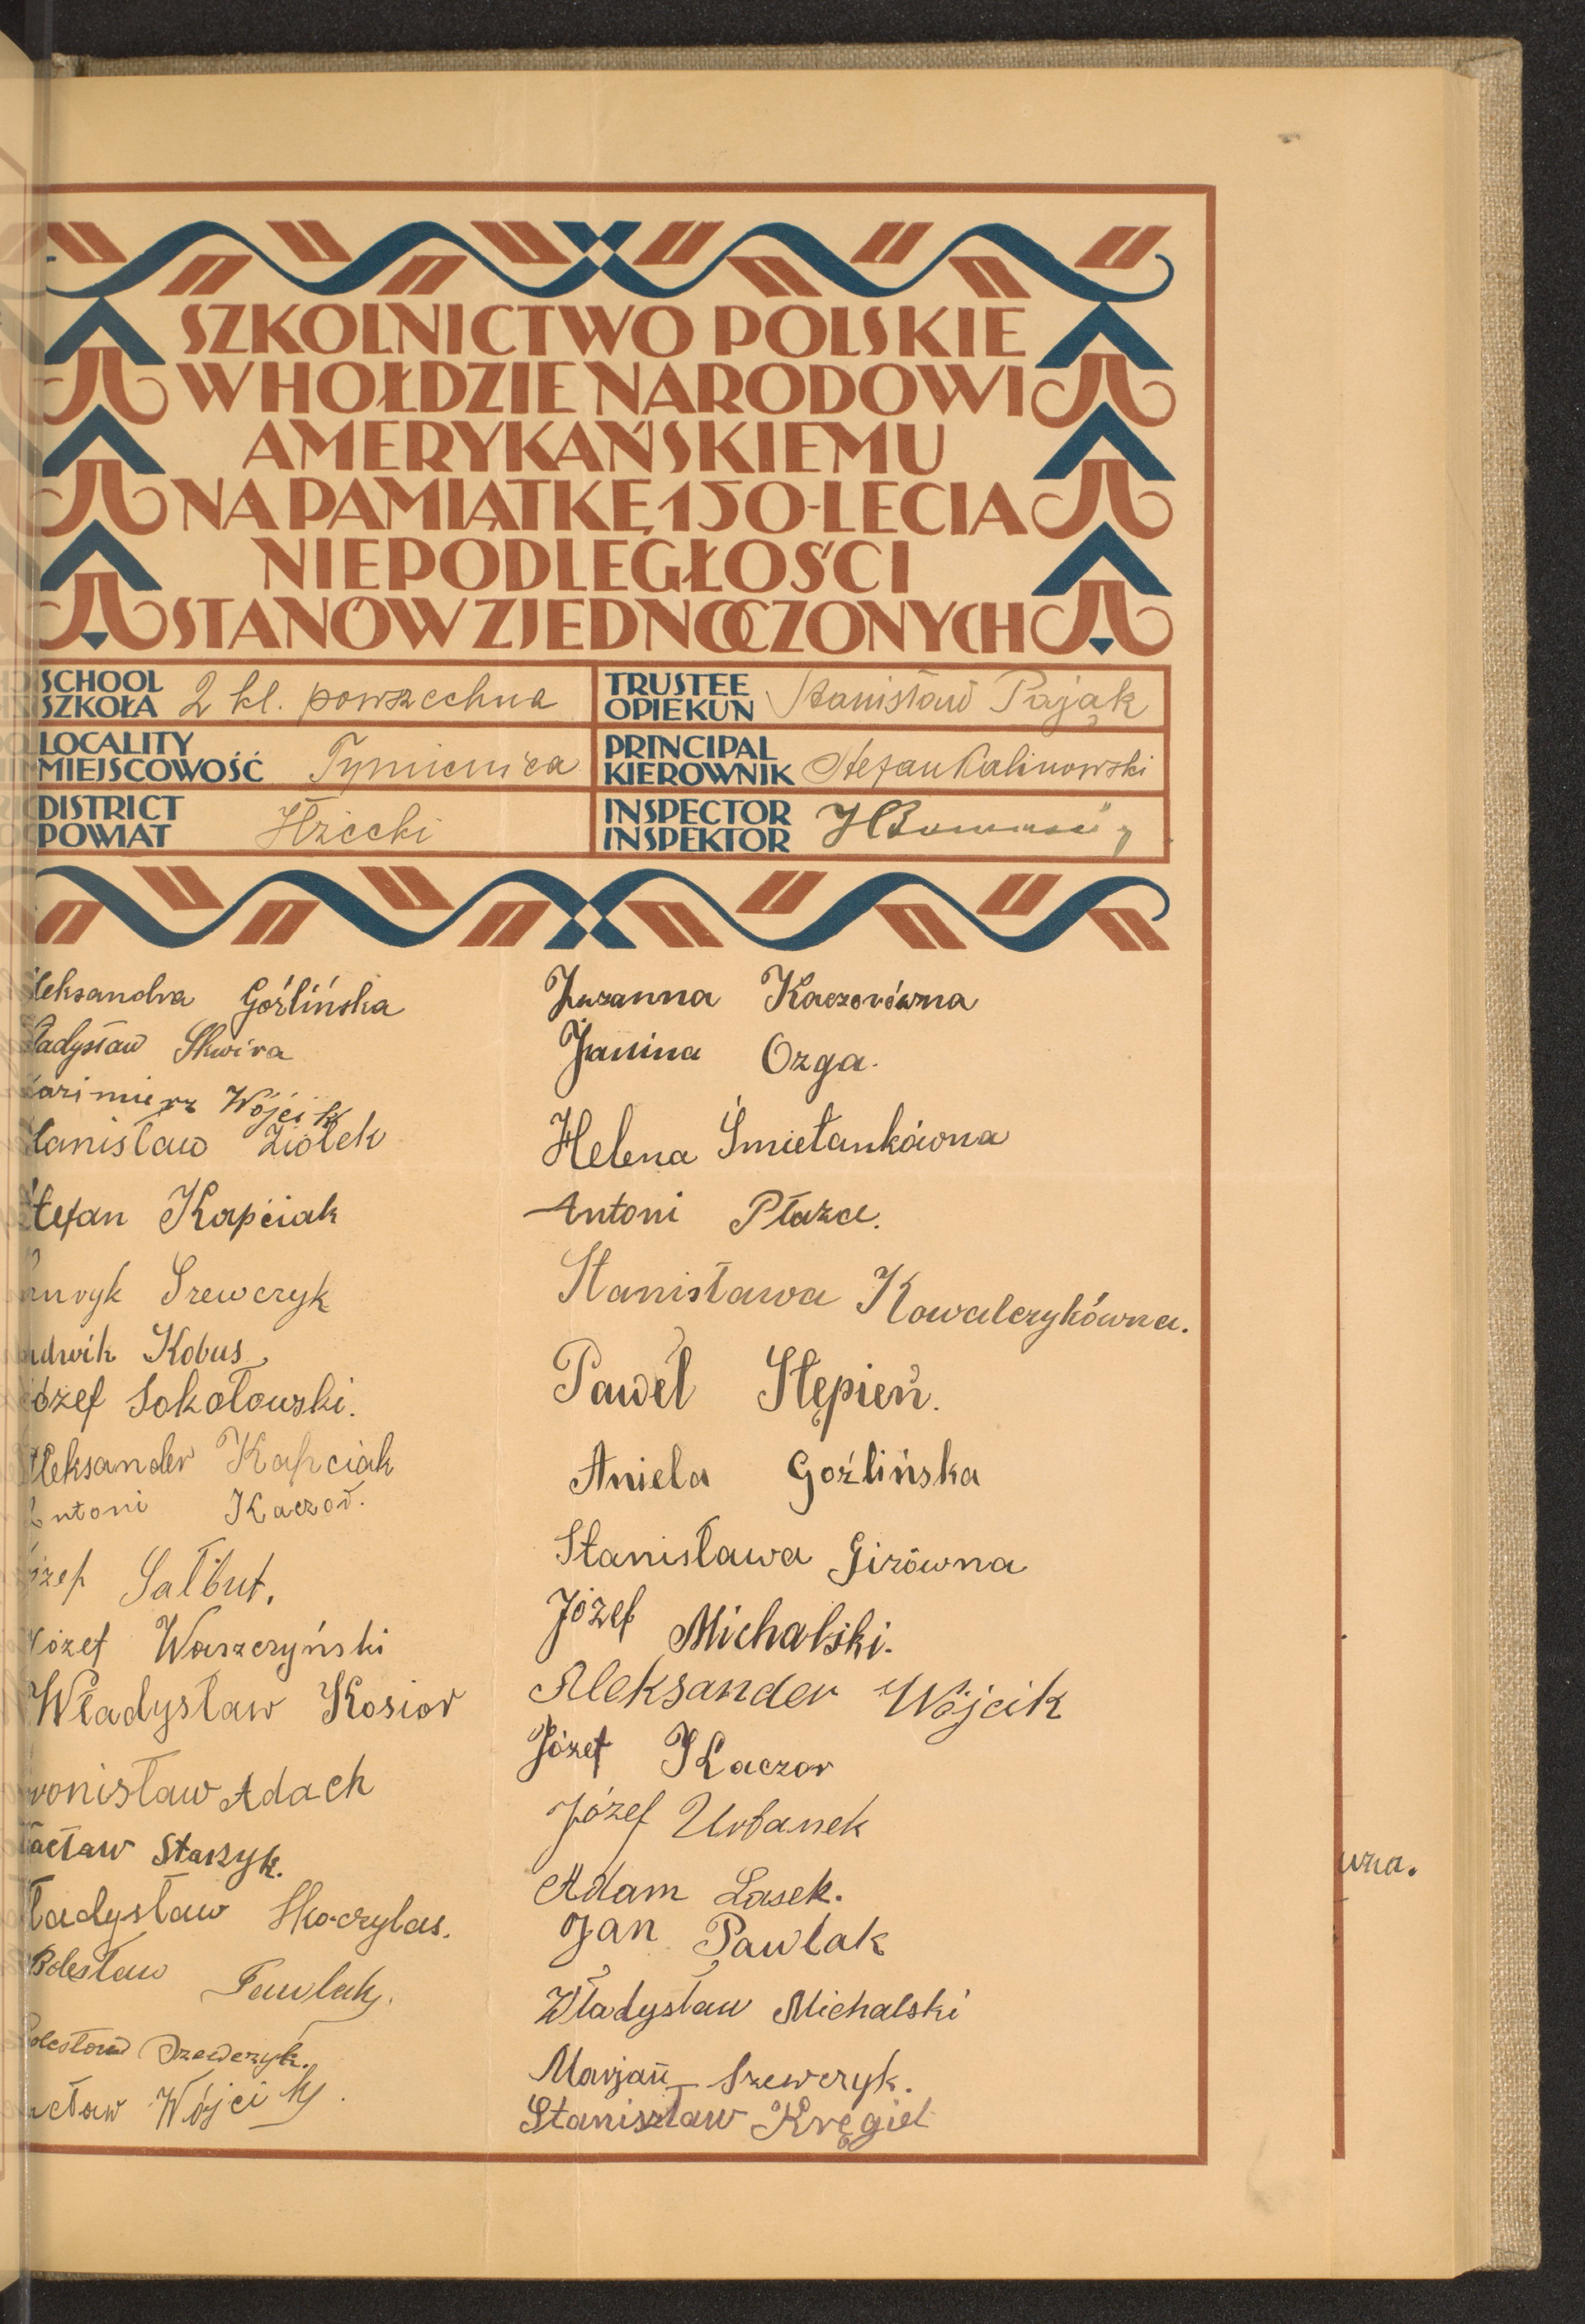 SZKOLNICTWO POLSKIE
W HOŁDZIE NARODOWI
AMERYKAŃSKIEMU
NA PAMIĄTKĘ 150-LECIA
NIEPODLEGŁOŚCI
STANÓW ZJEDNOCZONYCH
SCHOOL
SZKOŁA 2 kl. powszechna
TRUSTEE
OPIEKUN Stanisław Pająk
LOCALITY
MIEJSCOWOŚĆ Tymienica
PRINCIPAL
KIEROWNIK Stefan Kalinowski
DISTRICT
POWIAT Iłżecki
INSPECTOR
INSPEKTOR
Aleksandra Goźlińska
Władysław Skwira
Kazimierz Wójcik
Stanisław Ziółek
Stefan Kapciak
Henryk Szewczyk
Ludwik Kobus
Józef Sokołowski.
Aleksander Kapciak
Antoni Kaczor.
Józef Sałbut.
Józef Waszczyński
Władysław Kosior
Bronisław Adach
Wacław Starzyk.
Władysław Skoczylas.
Bolesław Pawlak.
Bolesław Szewczyk.
Wacław Wójcik.
Zuzanna Kaczorówna
Janina Ozga.
Helena Śmietankówna
Antoni Płaza.
Stanisława Kowalczykówna.
Paweł Stępień.
Aniela Goźlińska
Stanisława Girówna
Józef Michalski.
Aleksander Wójcik
Józef Kaczor
Józef Urbanek
Adam Lasek.
Jan Pawlak
Władysław Michalski
Marjan Szewczyk.
Staniszław Kręgiel
wna.